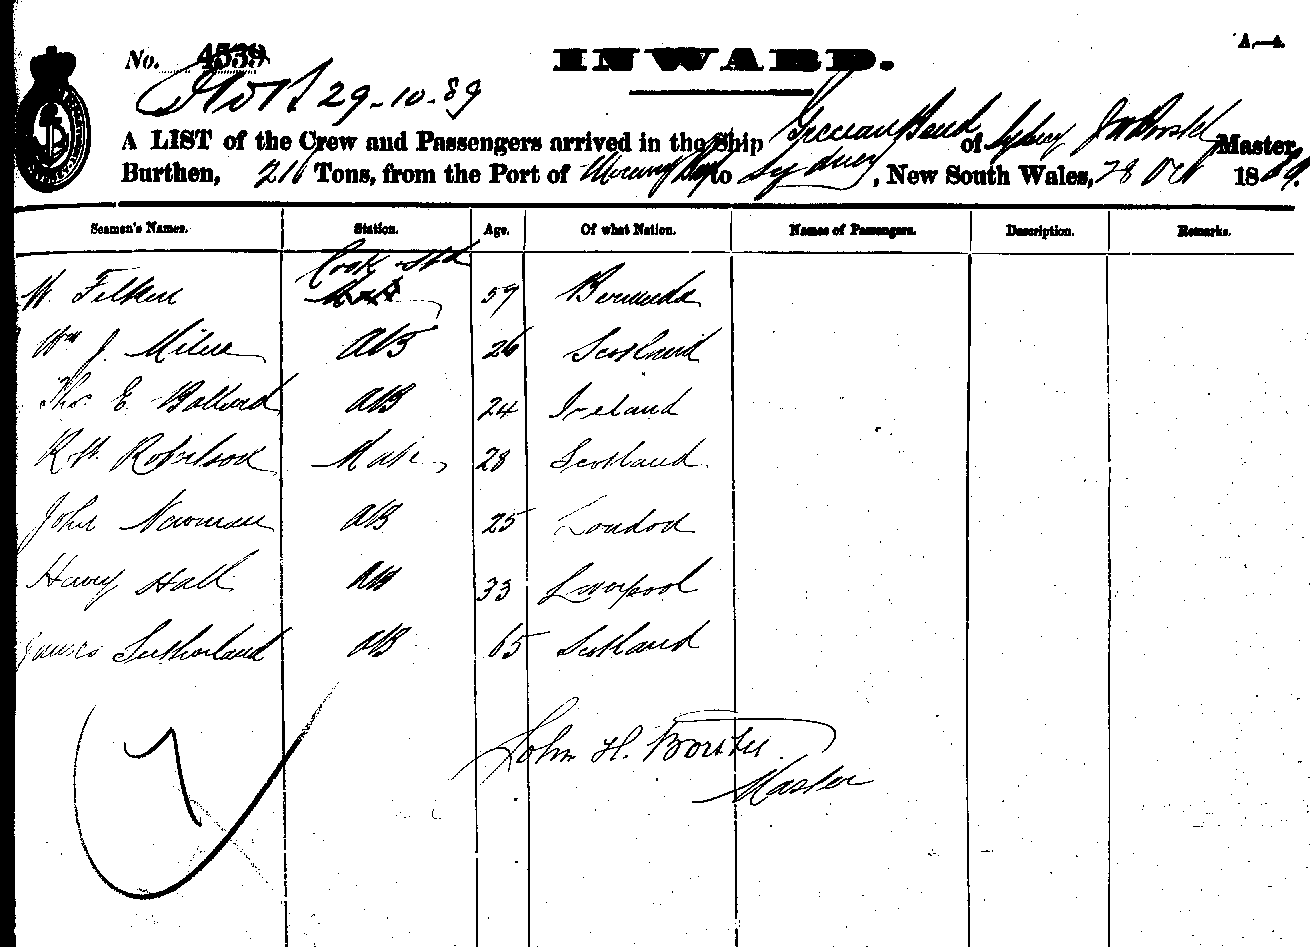 A.—A.
No. 4539 INWARD.
29-10-89
A LIST of the Crew and Passengers arrived in the Ship Grecian Bend of Sydney J H Master,
Burthen, Tons, from the Port of to Sydney, New South Wales, 28 Oct 1889.
Seamen's Names. Station. Age. Of what Nation. Names of Passengers. Description. Remarks.
Cook Std
W. 59 Bermuda
Wm J. Milne AB 26 Scotland
Thos E. Ballard AB 24 Ireland
R. W. Robertson Mate 28 Scotland
John Newman AB 25 London
Harry Hall AB 33 Liverpool
James Sutherland AB 65 Scotland
7
John H.
Master